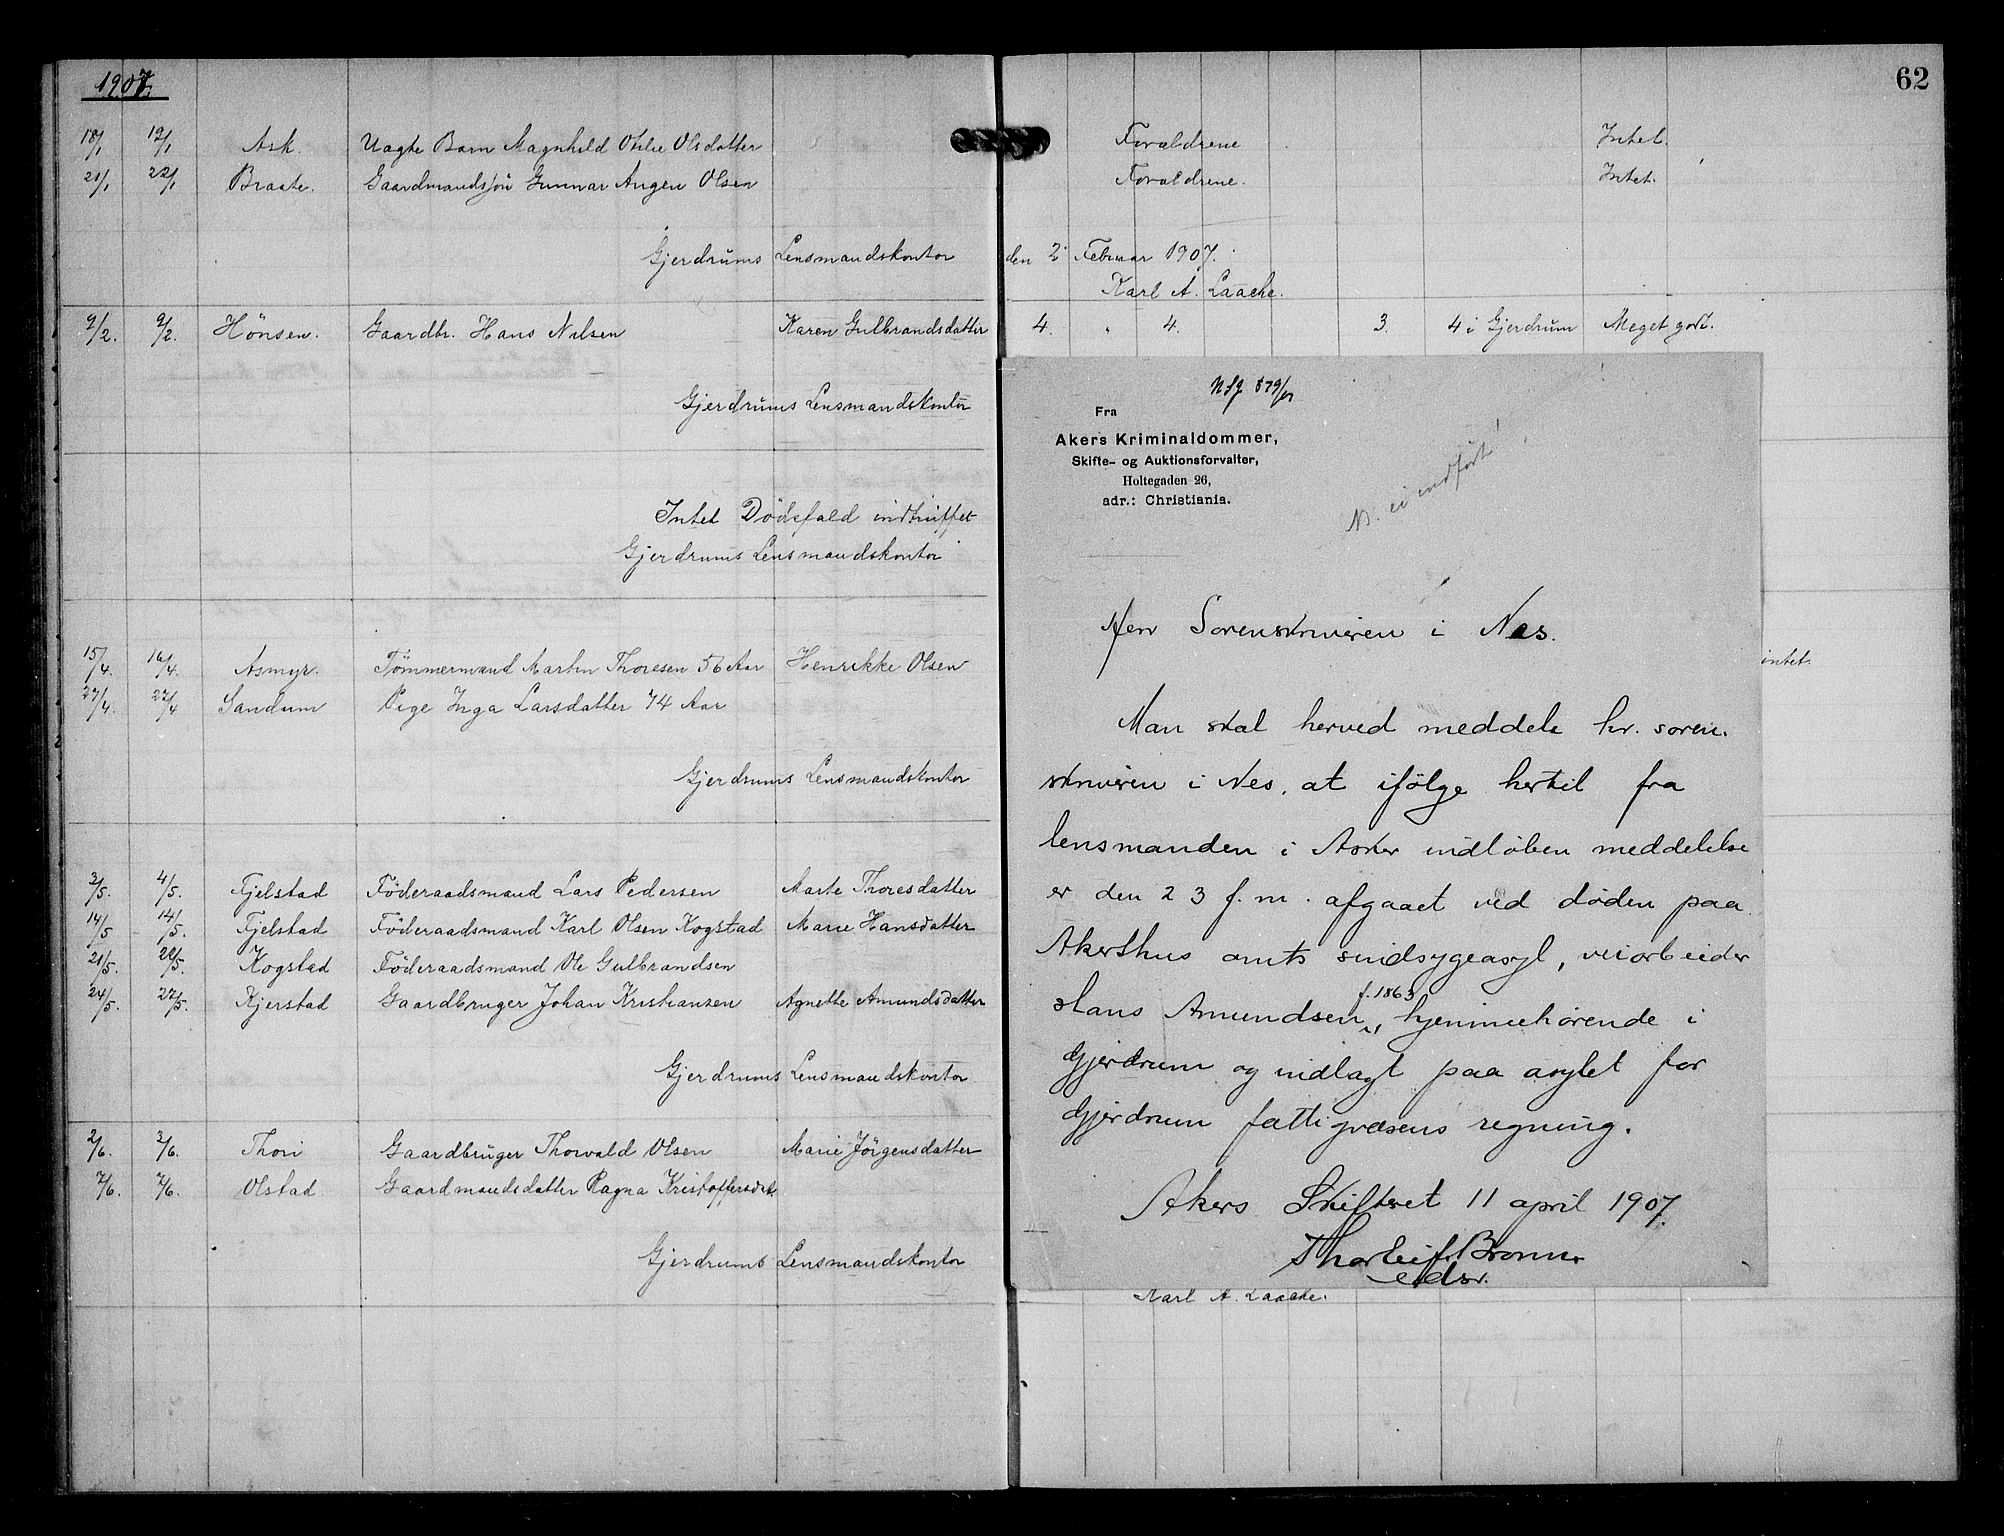 1907.
62
18/1 19/1 Ask. Uægte Barn Magnhild Otilie Olsdatter Forældrene Intet.
21/1 22/1 Braate. Gaardmandssön Gunnar Augen Olsen Forældrene. Intet.
Gjerdrums Lensmandskontor den 2 Februar 1907.
Karl A. Laache.
9/2. 9/2. Hönsen. Gaardbr. Hans Nilsen Karen Gulbrandsdatter 4. " 4. 3. 4 i Gjerdrum Meget godt.
Gjerdrums Lensmandskontor
Intet Dödsfald indtruffet
Gjerdrums Lensmandskontor
15/4. 16/4. Asmyr. Tömmermand Martin Thoresen 56 Aar Henrikke Olsen intet.
27/4. 27/4 Sandum Pige Inga Larsdatter 74 Aar
Gjerdrums Lensmandskontor
3/5. 4/5. Fjelstad Föderaadsmand Lars Pedersen Marte Thoresdatter
14/5 14/5. Fjelstad Föderaadsmand Karl Olsen Kogstad Marie Hansdatter
21/5. 22/5. Kogstad Föderaadsmand Ole Gulbrandsen
24/5. 27/5. Kjerstad Gaardbruger Johan Kristiansen Agnette Amundsdatter
Gjerdrums Lensmandskontor
2/6. 3/6. Thori Gaardbruger Thorvald Olsen Marie Jörgensdatter
7/6. 7/6. Olstad Gaardmandsdatter Ragna Kristoffersdat
Gjerdrums Lensmandskontor
Karl A. Laache.
879/07
Fra
Akers Kriminaldommer,
Skifte- og Auktionsforvalter,
Holtegaden 26,
adr.: Christiania.
NB. ei indført!
Herr Sorenskriveren i Nes.
Man skal herved meddele hr. soren-
skriveren i Nes, at ifölge hertil fra
lensmanden i Asker indløben meddelelse
er den 23 f.m. afgaaet ved døden paa
Akershus amts sindsygeasyl, veiarbeider
Hans Amundsen, f. 1863, hjemmehørende i
Gjerdrum og indlagt paa asylet for
Gjerdrum fattigvæsens regning.
Akers Skifteret 11 april 1907.
Thorleif Bronn
edsv.